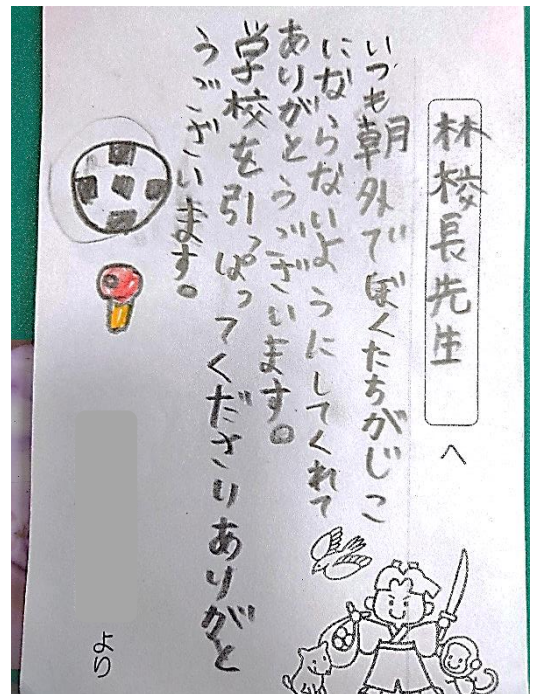 林校長先生
へ
いつも朝外でぼくたちがじこ
にならないようにしてくれて
ありがとうございます。
学校を引っぱってくださりありがと
うございます。
より